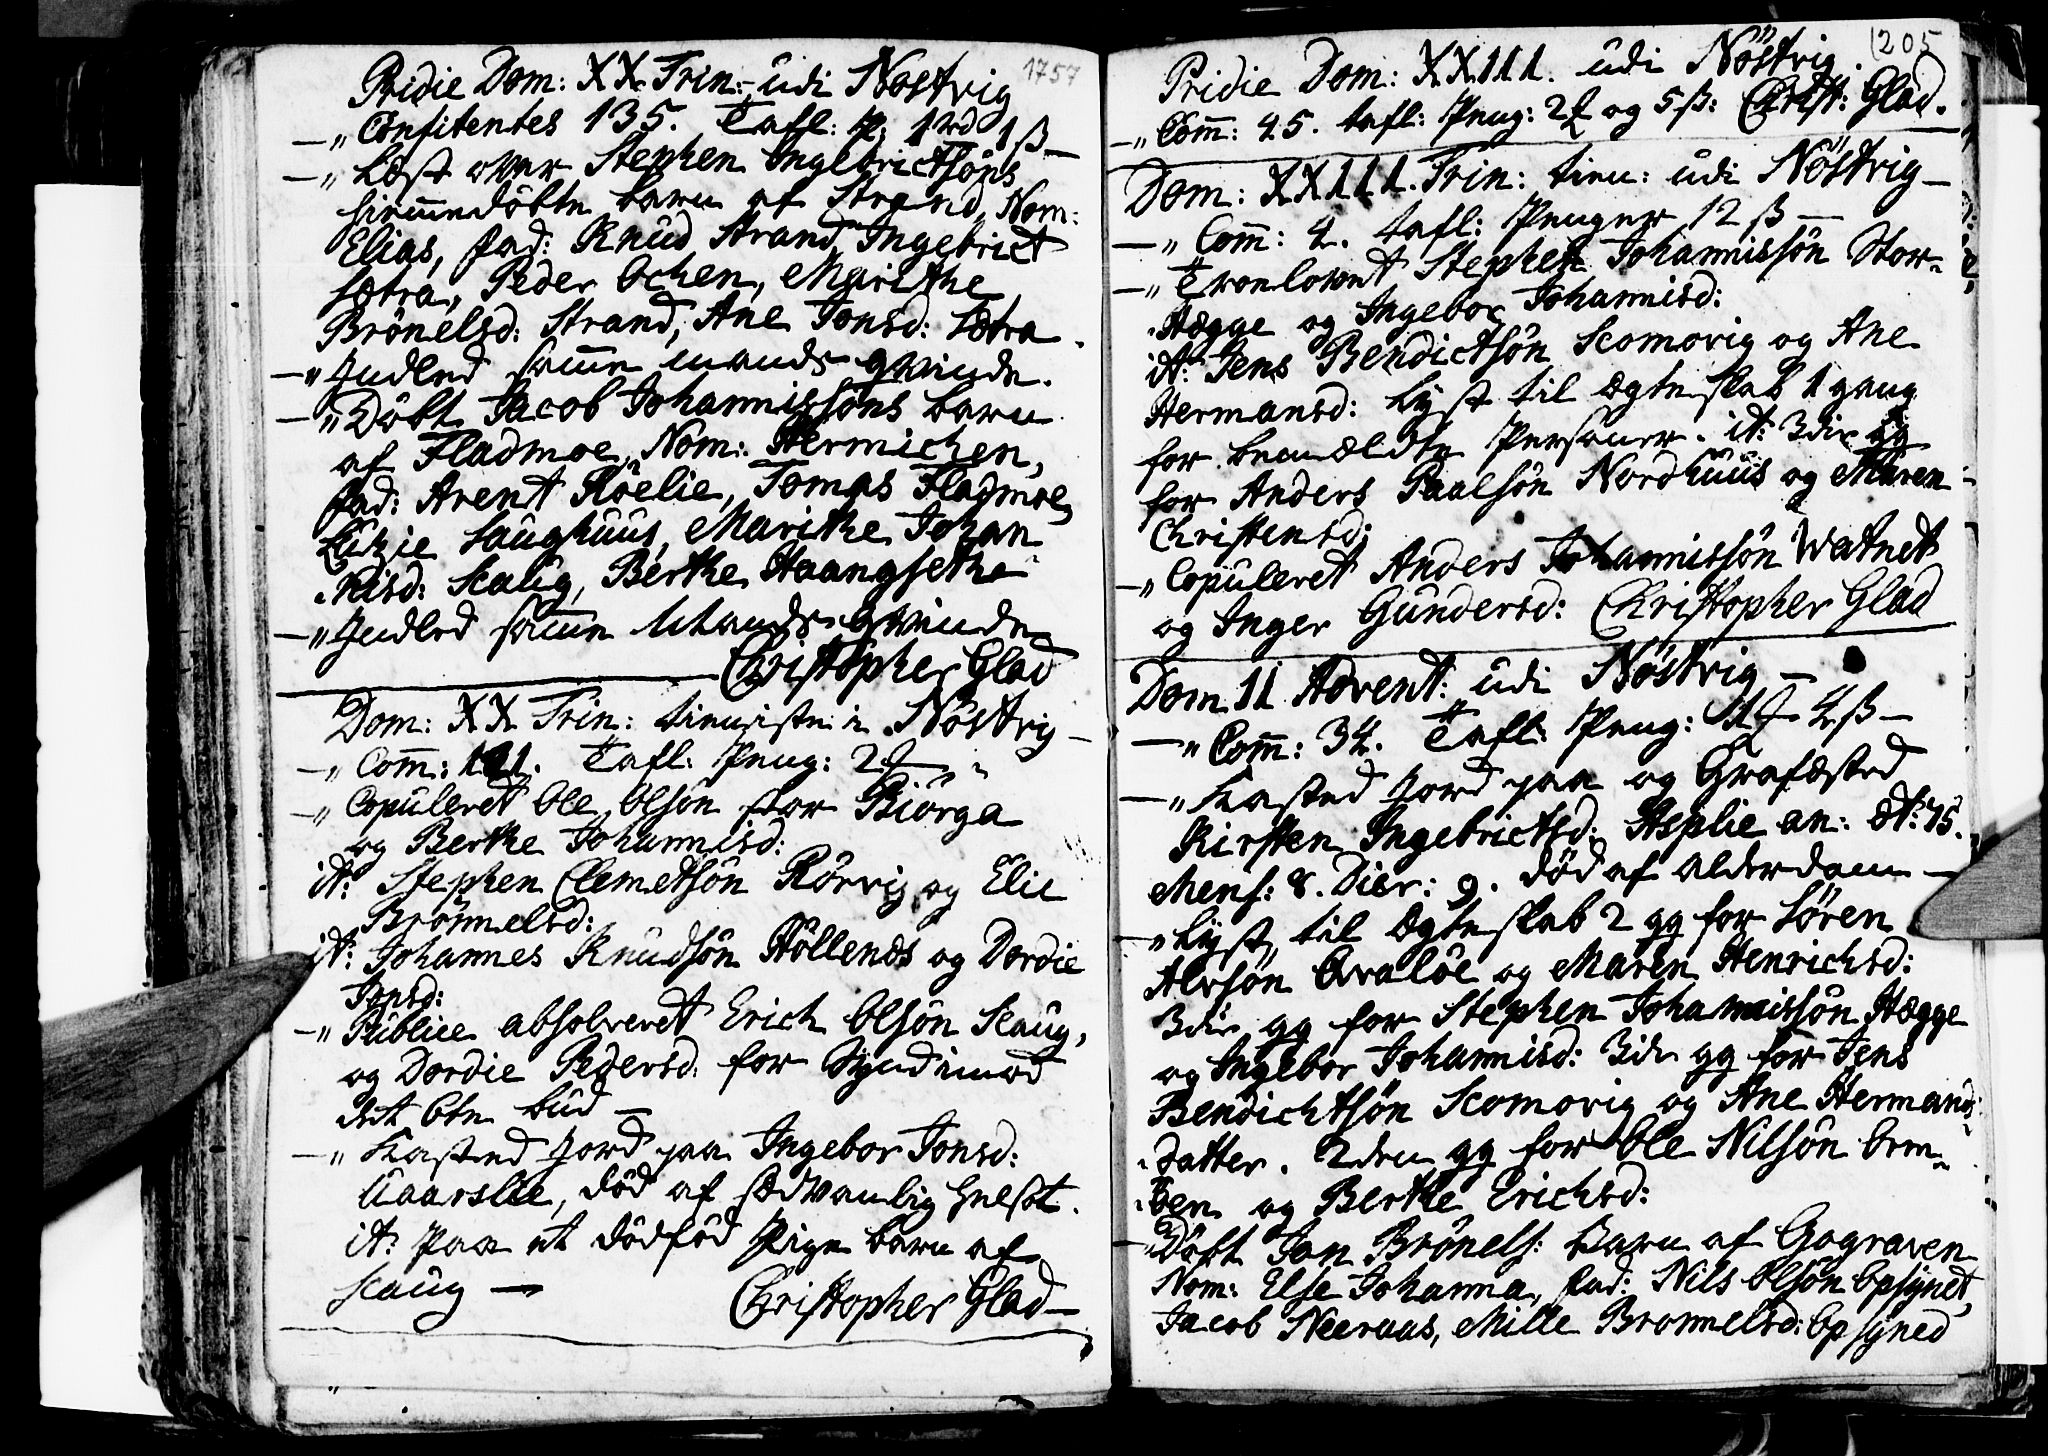 1757
Pridie Dom: XX Trin: udi Nöstvig
„ Confitentes 135. Tafl: P: 1 rd 1 ß
„ Læst over Stephen Ingebrictsöns
hiemmedöbte barn af Strand, Nom:
Elias, fad: Knud Strand, Ingebrict
Sætra, Peder Ochen, Marithe
Brönelsd: Strand, Ane Jonsd: Sætra.
„ Indled samme mands qvinde.
„ Döbt Jacob Johannissöns barn
af Fladmoe, Nom: Hermichen,
fad: Arent Röelie, Tomas Fladmoe,
Lucie Saughuus, Marithe Johan
nisd: Scaug, Berthe Haangsethe
„ Indled samme Mands qvinde
Christopher Glad
Dom: XX Trin: tieniste i Nöstvig
„ Comm: 121. Tafl: Peng: 2
„ Copuleret Ole Olsön stor Biörga
og Berthe Johannisd:
it: Stephen Clemetsön Rörvig og Elie
Brönnelsd:
it: Johannes Knudsön Höllends og Dordie
Jonsd:
„ Publice absolveret Erich Olsön Scaug,
og Dordie Pedersd: for Synd imod
det 6te bud
„ Kasted Jord paa Ingebor Jonsd:
Aaarslie, död af sædvanlig
it: Paa et dödföd Pige barn af
Scaug
Christopher Glad
205
Pridie Dom: XXIII. udi Nöstvig.
„ Comm: 45. tafl: Peng: 2 og 5 ß: Christ: Glad.
Dom: XXIII. Trin: tien: udi Nöstvig
„ Comm: 4. tafl: Penger 12 ß
„ Trolovet Stephen Johannissön Stor
Hægge og Ingebor Johannisd:
it: Jens Bendictsön Scomovig og Ane
Hermansd: Lyst til ægteskab 1 gang
for bemældte Personer. it: 3die gg
for Anders Paalsön Nordhuus og Maren
Christensd:
„ Copuleret Anders Johannissön Watnet
og Inger Gundersd: Christopher Glad
Dom II Advent: udi Nöstvig
„ Comm: 34. Tafl: Peng: 4 ß
„ Kasted Jord paa og Grafæsted
Kirsten Ingebrictsd: Asplie an: æt: 75.
Mens: 8. Dier: 9. död af Alderdom
„ Lyst til Ægteskab 2 gg for Sören
Alvsön Qvalöe og Maren Henrichsd:
3die gg for Stephen Johannissön Hægge
og Ingebor Johannisd: 3die gg for Jens
Bendichtsön Scomovig og Ane Hermands
datter. 2den gg for Ole Nilsön
og Berthe Erichsd:
„ Döbt Jon Brönels: Barn af Gograven
Nom: Else Johanna, fad: Nils Olsön Opsynet,
Jacob Neeraas, Mille Bronnelsd: Opsyned